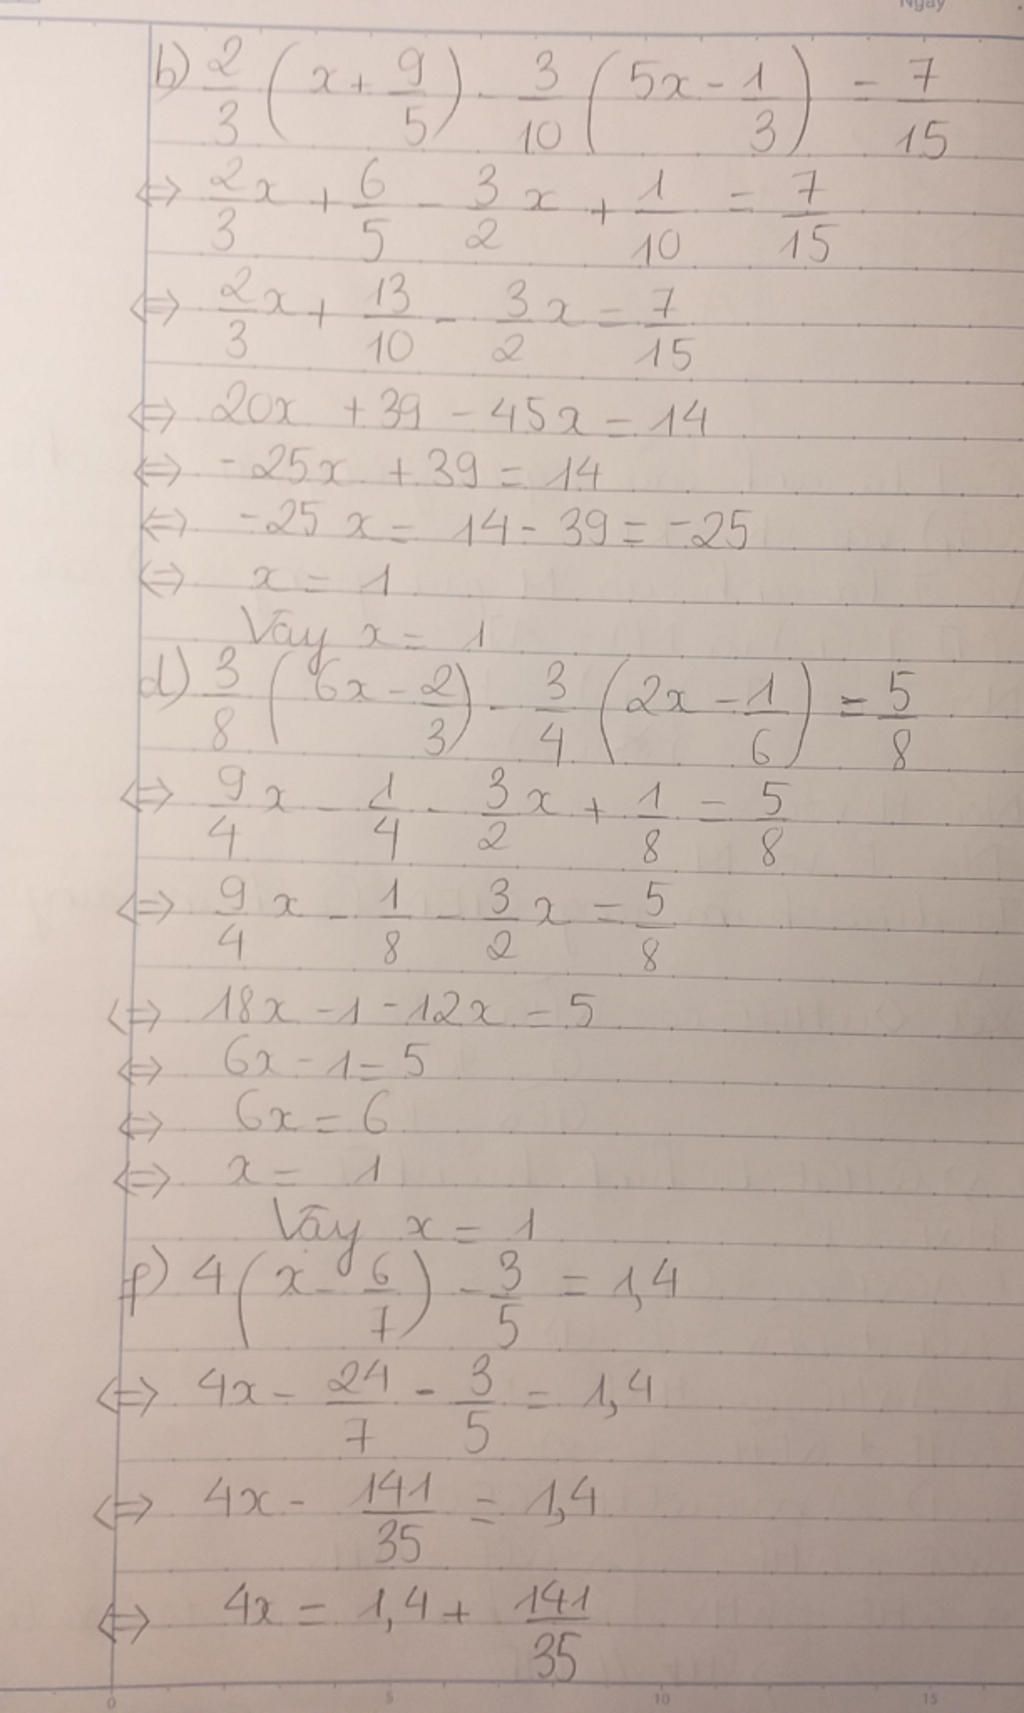 Ngày
b) 2/3 (x + 9/5) - 3/10 (5x - 1/3) = 7/15
⇔ 2/3 x + 6/5 - 3/2 x + 1/10 = 7/15
⇔ 2/3 x + 13/10 - 3/2 x = 7/15
⇔ 20x + 39 - 45x = 14
⇔ -25x + 39 = 14
⇔ -25x = 14 - 39 = -25
⇔ x = 1
Vậy x = 1
d) 3/8 (6x - 2/3) - 3/4 (2x - 1/6) = 5/8
⇔ 9/4 x - 1/4 - 3/2 x + 1/8 = 5/8
⇔ 9/4 x - 1/8 - 3/2 x = 5/8
⇔ 18x - 1 - 12x = 5
⇔ 6x - 1 = 5
⇔ 6x = 6
⇔ x = 1
Vậy x = 1
f) 4 (x - 6/7) - 3/5 = 1,4
⇔ 4x - 24/7 - 3/5 = 1,4
⇔ 4x - 141/35 = 1,4
⇔ 4x = 1,4 + 141/35
0 5 10 15